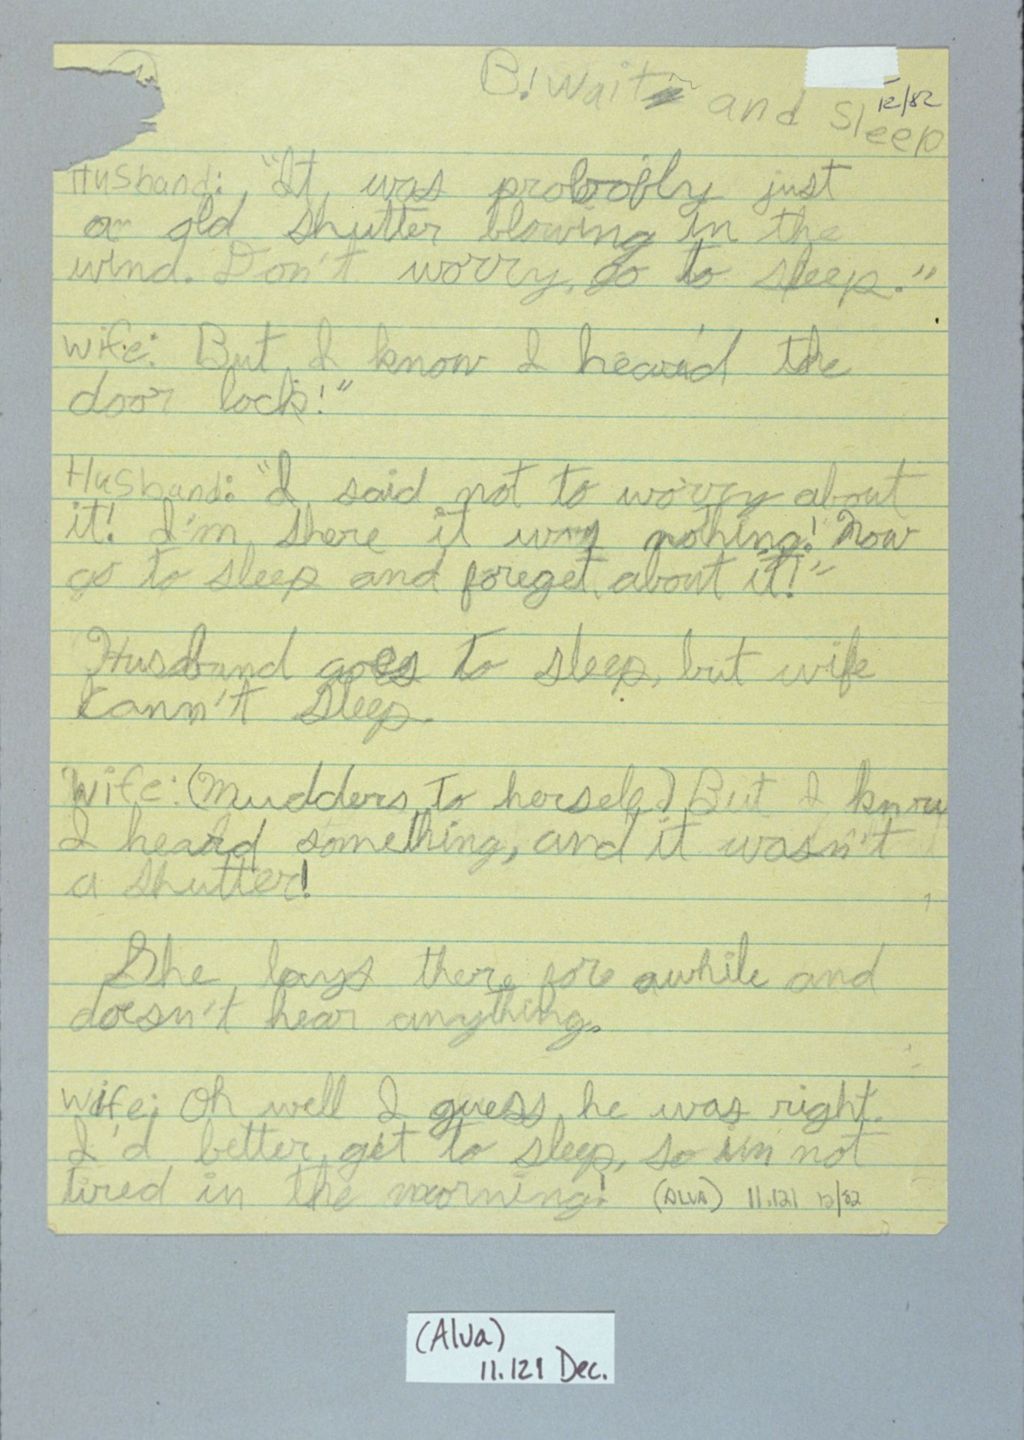 B! Wait and Sleep
12/82
Husband: "It was probobly just
an old shutter blowing in the
wind. Don't worry, go to sleep."
Wife: But I know I heard the
door lock!"
Husband: "I said not to worry about
it! I'm shere it was nothing! Now
go to sleep and foreget about it!"
Husband goes to sleep, but wife
cann't sleep.
Wife: (Mudders to herself) But I know
I heard something, and it wasn't
a shutter!
She lays there fore awhile and
doesn't hear anything.
Wife: Oh well I guess he was right.
I'd better get to sleep, so im not
tired in the morning!
(ALVA) 11.121 12/82
(Alva)
11.121 Dec.